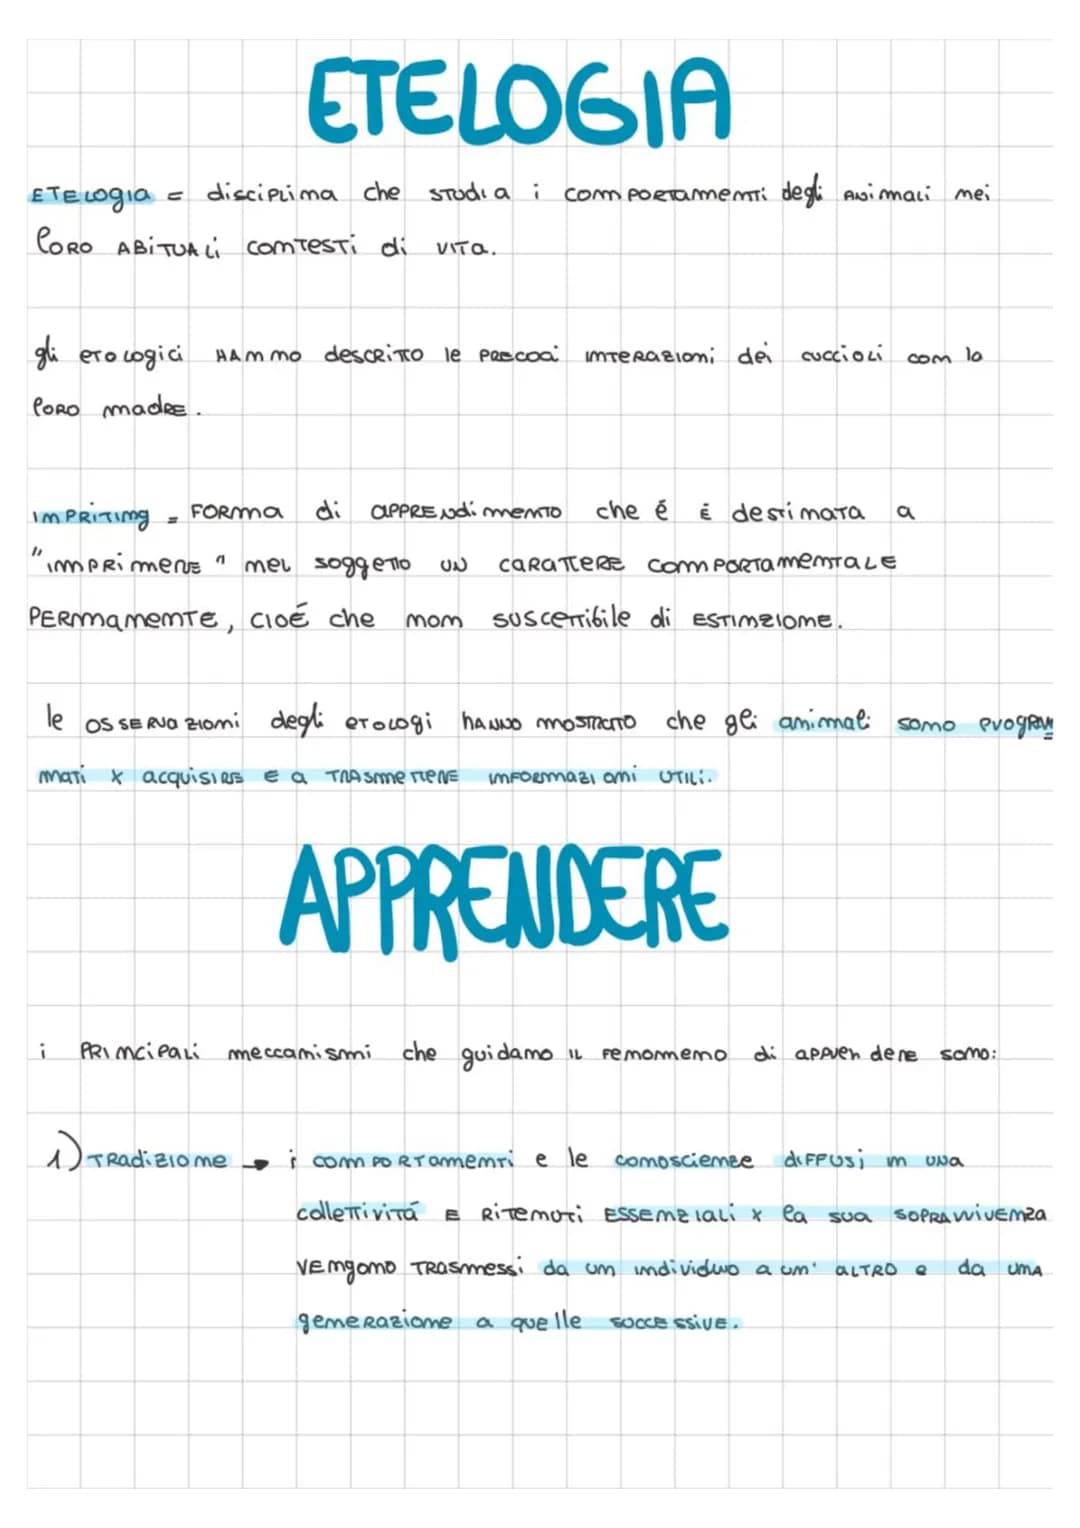 ETELOGIA
ETELOGIA = disciplina che studia i comportamenti degli animali nei
loro abituali contesti di vita.
gli etologici hanno descritto le precoci interazioni dei cuccioli con la
loro madre.
IMPRITING = forma di apprendimento che é è destinata a
"imprimere" nel soggetto un carattere comportamentale
permanente, cioé che non suscettibile di estinzione.
le osservazioni degli etologi hanno mostrato che gli animali sono program
mati x acquisire e a trasmettere informazioni utili.
APPRENDERE
i principali meccanismi che guidano il fenomneno di apprendere sono:
1) Tradizione → i comportamenti e le conoscienze diffusi in una
collettivitá e ritenuti essenziali x la sua sopravvivenza
vengono trasmessi da un individuo a un' altro e da una
generazione a quelle successive.